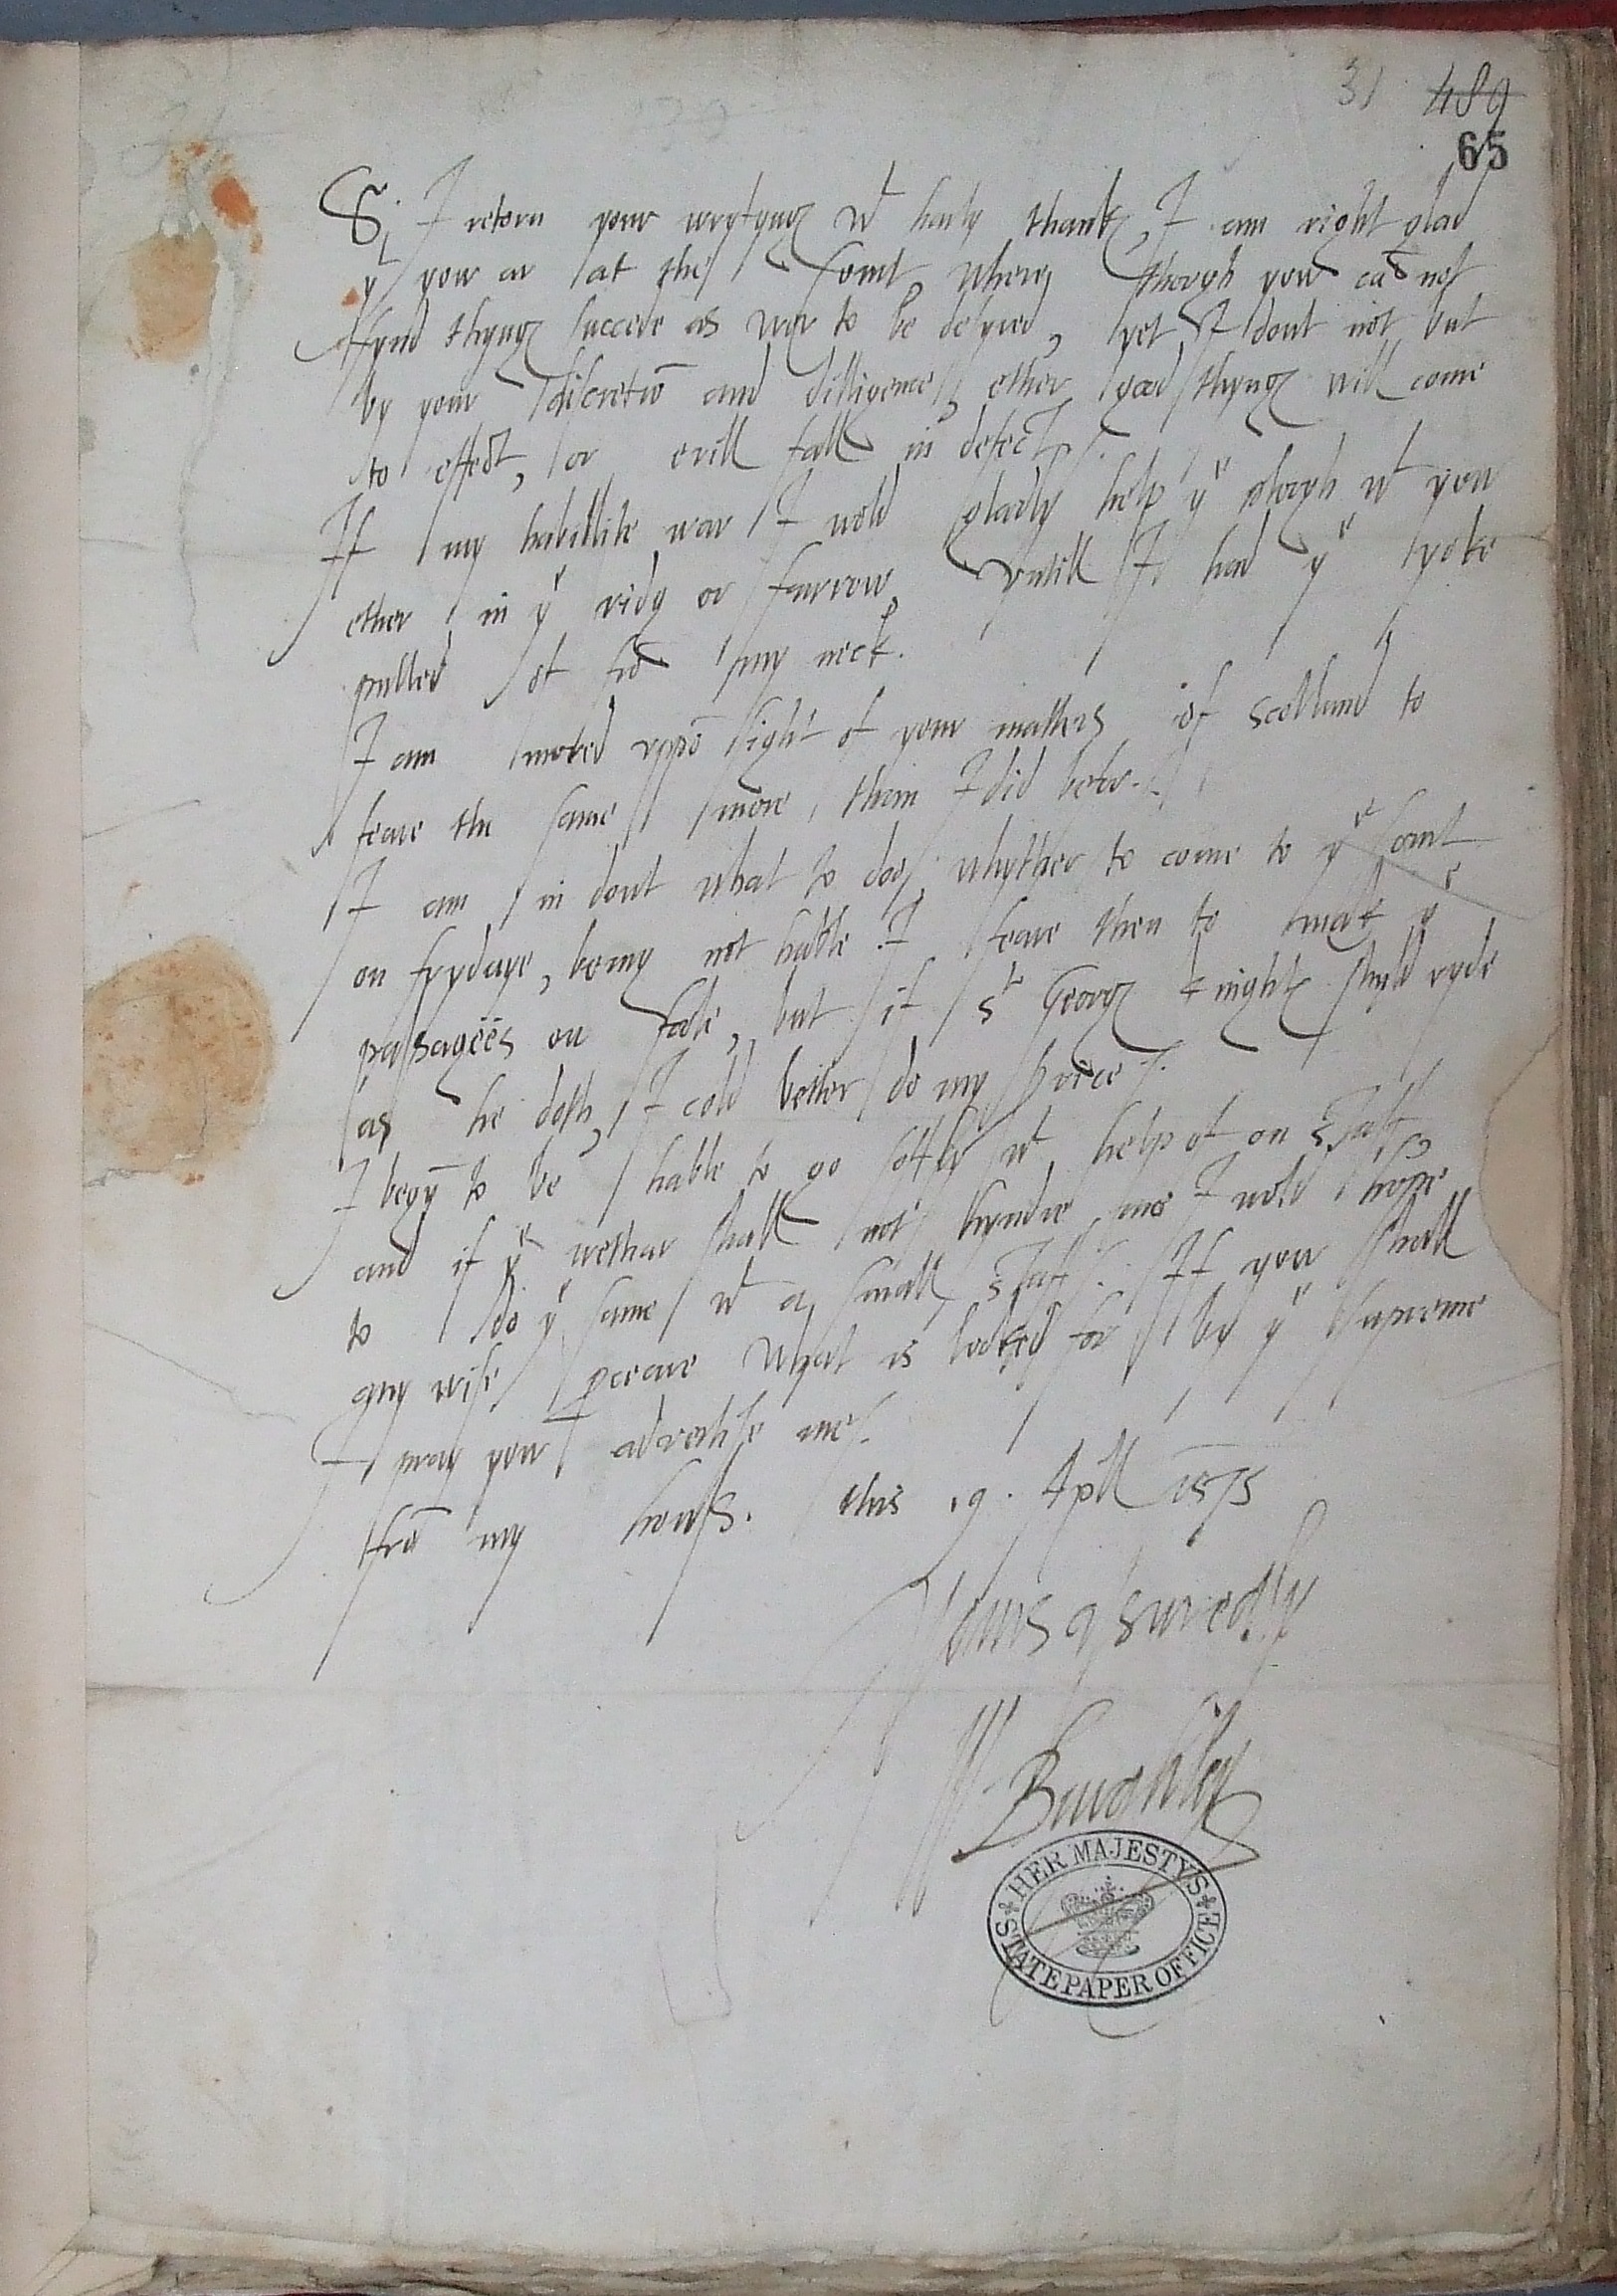 31 489
65
Sr I retorn your wrytyngs wt harty thanks, I am right glad
yt yow ar at the Court, wherin though yow cā not
fynd thyngs succede as wer to be desyred, yet I dout not but
by your discretiō and dilligence, ether good thyngs will come
to effect, or evill fall in defect.
If my habillite war I wold gladly help ye plough wt yow
ether in ye ridg or furrow, untill I had ye yoke
pulled of frō my neck.
I am moved uppō sight of your matters of scotland to
feare the same more, than I did befor.
I am in dout what to doo, whyther to come to ye Court
on frydaye, being not hable I feare then to mak ye
passagees on foote, but if St Georg knights shuld ryde
as he doth, I cold better do my service.
I begyn to be hable to go softly wt help of on staff,
and if ye wether shall not hyndre me I wold hope
to do ye same wt a small staff. If yow shall
any wise perceave what is looked for by ye supreme
I pray yow advertise me.
frō my howss. this 19. Apll 1575
Yours assuredly
W Burghley
HER MAJESTY'S
STATE PAPER OFFICE